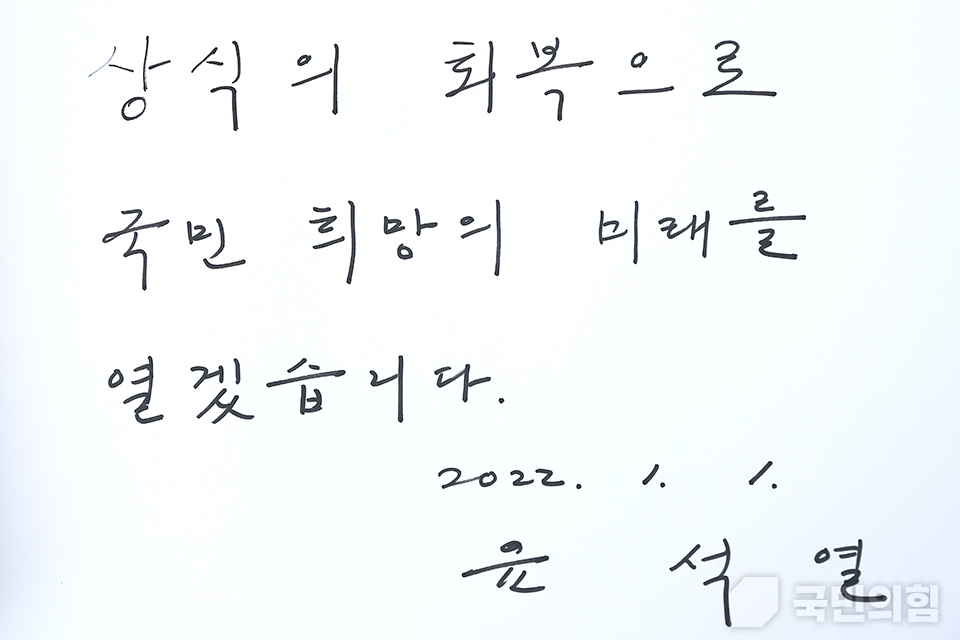 상식의 회복으로
국민 희망의 미래를
열겠습니다.
2022. 1. 1.
윤 석 열
국민의힘